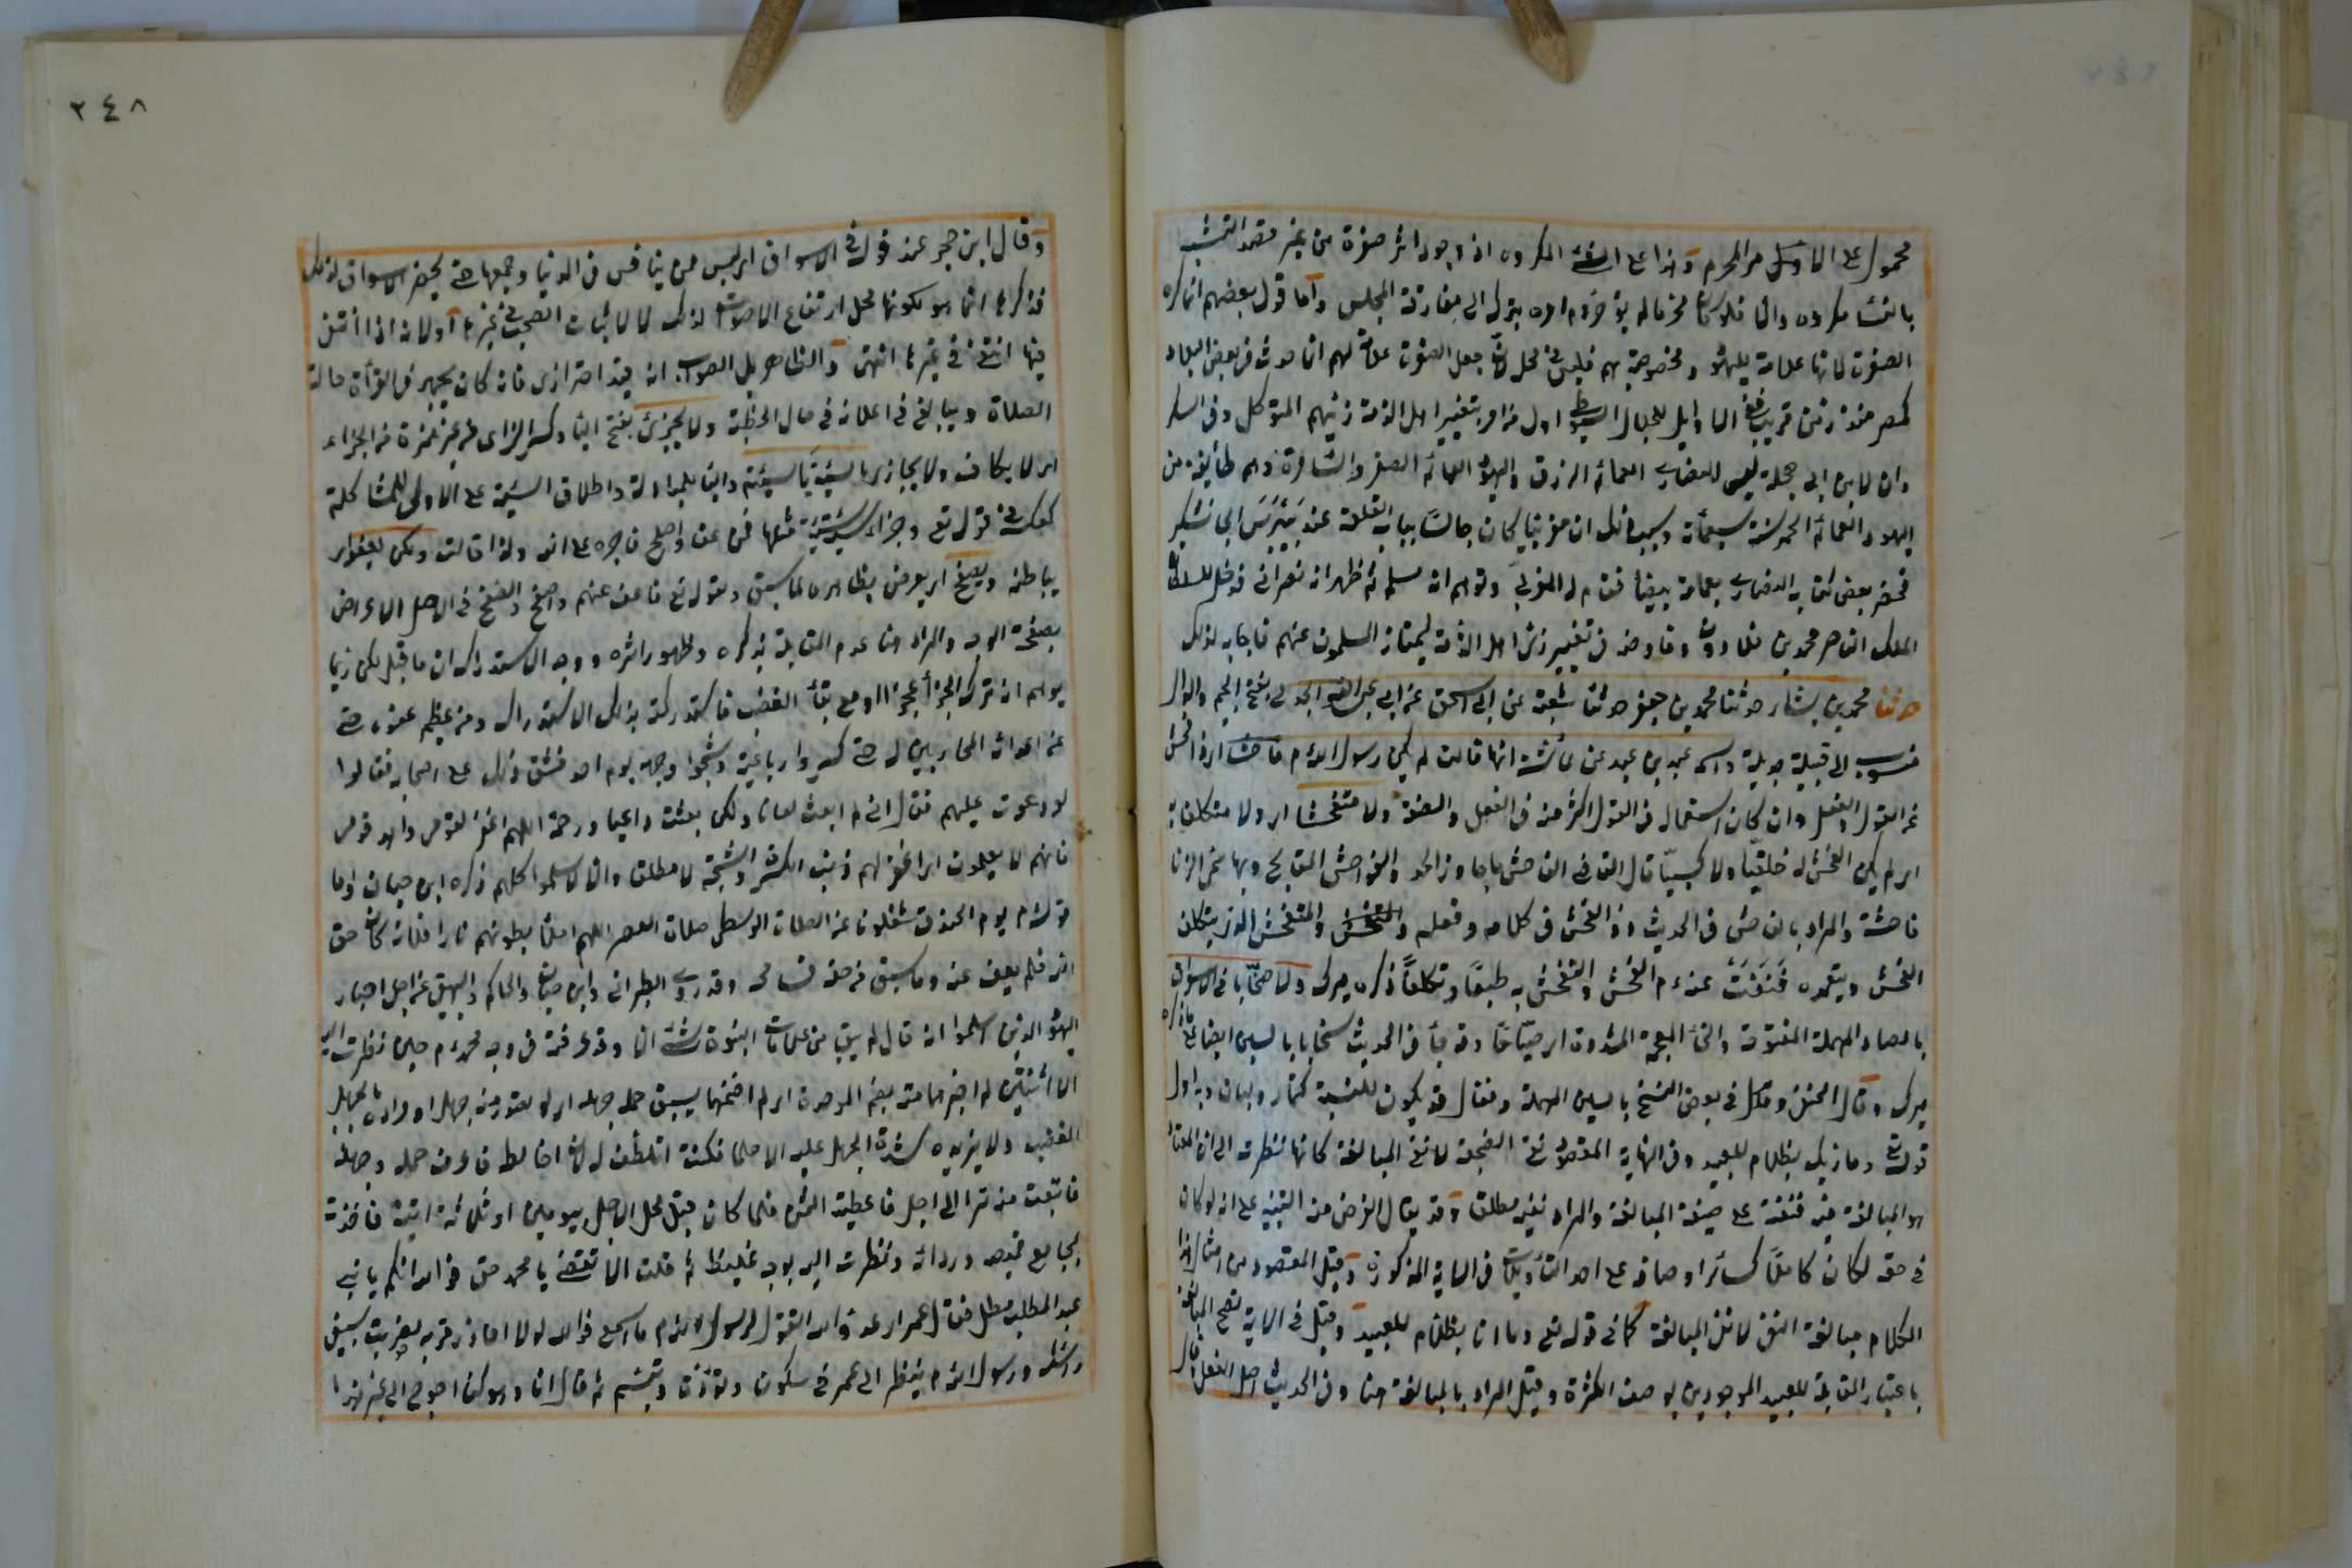 محمول على الاول من المحرم وهذا على الشئ المكروه اذ وجود اثر صفرة من غير قصد التشبه
بالنساء مكروه والا فلو كان محرما لم يؤخر ام امره بتركه الى مفارقة المجلس واما قول بعضهم انما كره
الصفرة لانها علامة لليهود ومخصوصة بهم فليس فى محله لان جعل الصفرة علامة لهم انما حدث فى بعض البلاد
كمصر منذ زمن قريب ففى الاوايل للجلال السيوطى اول من امر بتغيير اهل الذمة زيهم المتوكل وفى السكر
دان لابن ابى حجلة لبس النصارى العمائم الزرق واليهود العمائم الصفر والسامرة وهم طائفة من
اليهود العمائم الحمر سنة سبعمائة وسبب ذلك ان مغربيا كان جالسا بباب القلعة عند بيبرس الجاشنكير
فحضر بعض كتاب النصارى بعمامة بيضاء فقام له المغربى وتوهم انه مسلم ثم ظهر انه نصرانى فدخل للسلطان
الملك الناصر محمد بن قلاوون وفاوضه فى تغيير زى اهل الذمة ليمتاز المسلمون عنهم فاجابه لذلك
حدثنا محمد بن بشار حدثنا محمد بن جعفر حدثنا شعبة عن ابى اسحق عن ابى عبد الله الجدلى بفتح الجيم والدال
منسوب الى قبيلة جديلة واسمه عبد بن عبد عن عائشة انها قالت لم يكن رسول الله م فاحشا اى ذا فحش
فى القول والفعل وان كان استعماله فى القول اكثر منه فى الفعل والصفة ولا متفحشا اى ولا متكلفا به
اى لم يكن الفحش له خلقيا ولا كسبيا قال القاضى الفاحش ما جاوز الحد والفواحش المقابح وبها سمى الزنا
فاحشة والمراد بالفاحش فى الحديث ذو الفحش فى كلامه وفعله والمتفحش الذى يتكلف
الفحش ويتعمده فنفت عنه م الفحش والتفحش به طبعا وتكلفا ذكره ميرك ولا صخابا فى الاسواق
بالصاد المهملة المفتوحة والخاء المعجمة المشددة اى صياحا وقد جاء فى الحديث سخابا بالسين ايضا على ما ذكره
ميرك وقال الحنفى وقيل فى بعض النسخ بالسين المهملة وفعال قد يكون للنسبة كتمار ولبان وبه اول
قوله تع وما ربك بظلام للعبيد وفى النهاية المقصود نفى الصخب لا نفى المبالغة كانها نظرت الى ان المعتاد
هو المبالغة فيه فنفته على صيغة المبالغة والمراد نفيه مطلقا وقد يقال الغرض منه التنبيه على انه لو كان
فى حقه لكان كاملا كسائر اوصافه على احد التأويلات فى الاية المذكورة وقيل المقصود من امثال هذا
الكلام مبالغة النفى لا نفى المبالغة كما فى قوله تع وما انا بظلام للعبيد وقيل فى الاية تصح المبالغة
باعتبار المقابلة للعبيد الموجودين بوصف الكثرة وقيل المراد بالمبالغة هنا وفى الحديث اصل الفعل
٢٤٨
وقال ابن حجر عند قوله فى الاسواق اى ليس ممن ينافس فى الدنيا وجمعها حتى يحضر الاسواق لذلك
فذكرها انما هو لكونها محل ارتفاع الاصوات لذلك لا لاثبات الصخب فى غيرها او لانه اذا انتفى
فيها انتفى فى غيرها انتهى والظاهر بل الصواب انه قيد احترازى فانه كان يجهر فى القرأة حالة
الصلاة ويبالغ فى اعلانه فى حال الخطبة ولا يجزئ بفتح الياء وكسر الزاى من غير همزة من الجزاء
اى لا يكافئ ولا يجازى بالسيئة السيئة والباء للمبادلة واطلاق السيئة على الاولى للمشاكلة
كعكسه فى قوله تع وجزاء سيئة سيئة مثلها فمن عفا واصلح فاجره على الله ولذا قالت ولكن يعفو اى
بباطنه ويصفح اى يعرض بظاهره لما سبق ولقوله تع فاعف عنهم واصفح والصفح فى الاصل الاعراض
بصفحة الوجه والمراد هنا عدم المقابلة بذكره وظهور اثره ووجه الاستدراك ان ما قبل لكن ربما
يوهم انه ترك الجزاء عجزا او مع بقاء الغضب فاستدركته بذلك الاستدراك ومن عظيم عفوه حتى
عن اعدائه المحاربين له حتى كسروا رباعيته وشجوا وجهه يوم احد فشق ذلك على اصحابه فقالوا
لو دعوت عليهم فقال انى لم ابعث لعانا ولكن بعثت داعيا ورحمة اللهم اغفر لقومى واهد قومى
فانهم لا يعلمون اى اغفر لهم ذنب الكسر والشجة لا مطلقا والا لاسلموا كلهم ذكره ابن حبان واما
قوله م يوم الخندق شغلونا عن الصلاة الوسطى صلاة العصر اللهم املأ بطونهم نارا فلانه كان حق
الله فلم يعف عنه وما سبق من حقه فسامحه وقد روى الطبرانى وابن حبان والحاكم والبيهقى عن اجل احبار
اليهود الذين اسلموا انه قال لم يبق من علامات النبوة شئ الا وقد عرفته فى وجه محمد م حين نظرت اليه
الا اثنتين لم اخبرهما منه بضم الموحدة اى لم امتحنهما يسبق حلمه جهله اى لو تصور منه جهل او مراده بالجهل
الغضب ولا يزيده شدة الجهل عليه الا حلما فكنت اتلطف له لان اخالطه فاعرف حلمه وجهله
فابتعت منه تمرا الى اجل فاعطيته الثمن فلما كان قبل محل الاجل بيومين او ثلاثة اتيته فاخذت
بمجامع قميصه وردائه ونظرت اليه بوجه غليظ ثم قلت الا تقضينى يا محمد حقى فوالله انكم يا بنى
عبد المطلب مطل فقال عمر اى عدو الله اتقول لرسول الله م ما اسمع فوالله لولا ما احاذر قربه لضربت بسيفى
رأسك ورسول الله م ينظر الى عمر فى سكون وتؤدة وتبسم ثم قال انا وهو كنا احوج الى غير هذا